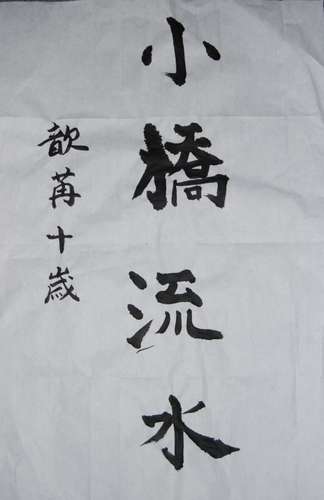 小橋流水
歆苒十歲